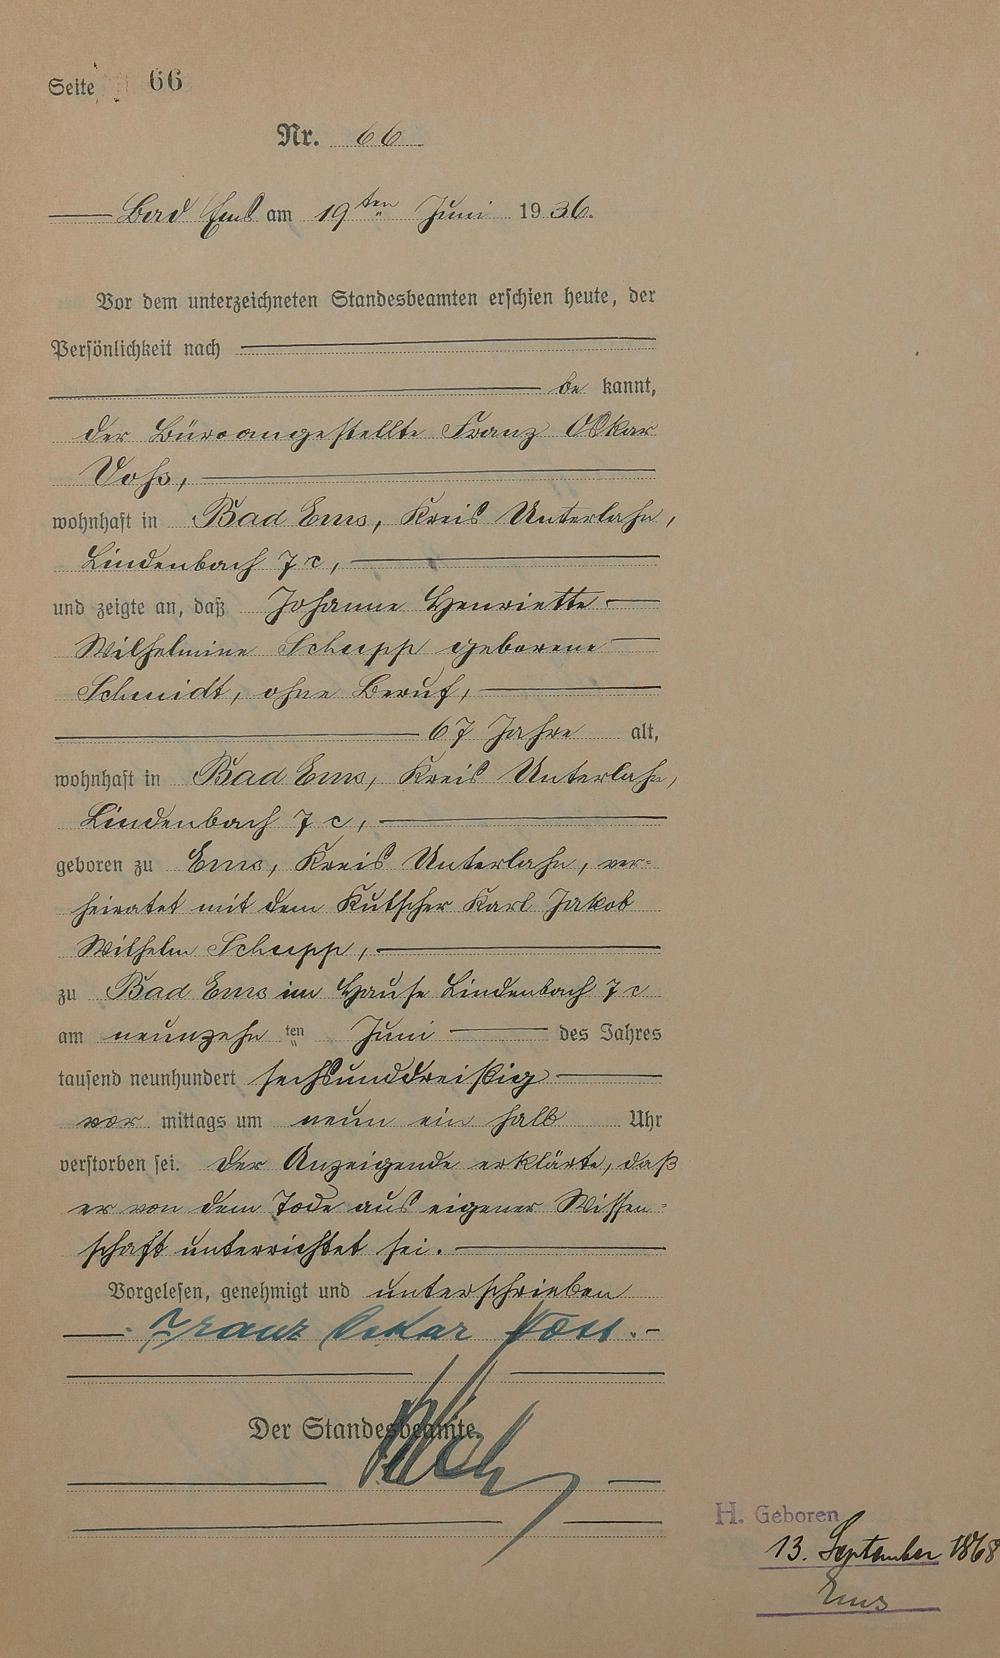 Seite 66
Nr. 66
Bad Ems am 19ten Juni 1936.
Vor dem unterzeichneten Standesbeamten erschien heute, der
Persönlichkeit nach
be kannt,
der Büroangestellte Franz Oskar
Voß,
wohnhaft in Bad Ems, Kreis Unterlahn,
Lindenbach 7c,
und zeigte an, daß Johanne Henriette
Wilhelmine Schupp geborene
Schmidt, ohne Beruf,
67 Jahre alt,
wohnhaft in Bad Ems, Kreis Unterlahn,
Lindenbach 7c,
geboren zu Ems, Kreis Unterlahn, ver-
heiratet mit dem Kutscher Karl Jakob
Wilhelm Schupp,
zu Bad Ems im Hause Lindenbach 7c
am neunzehn ten Juni des Jahres
tausend neunhundert sechsunddreißig
vor mittags um neun ein halb Uhr
verstorben sei. Der Anzeigende erklärte, daß
er von dem Tode aus eigener Wissen-
schaft unterrichtet sei.
Vorgelesen, genehmigt und unterschrieben
Franz Oskar Voss.
Der Standesbeamte.
H. Geboren
13. September 1868
Ems